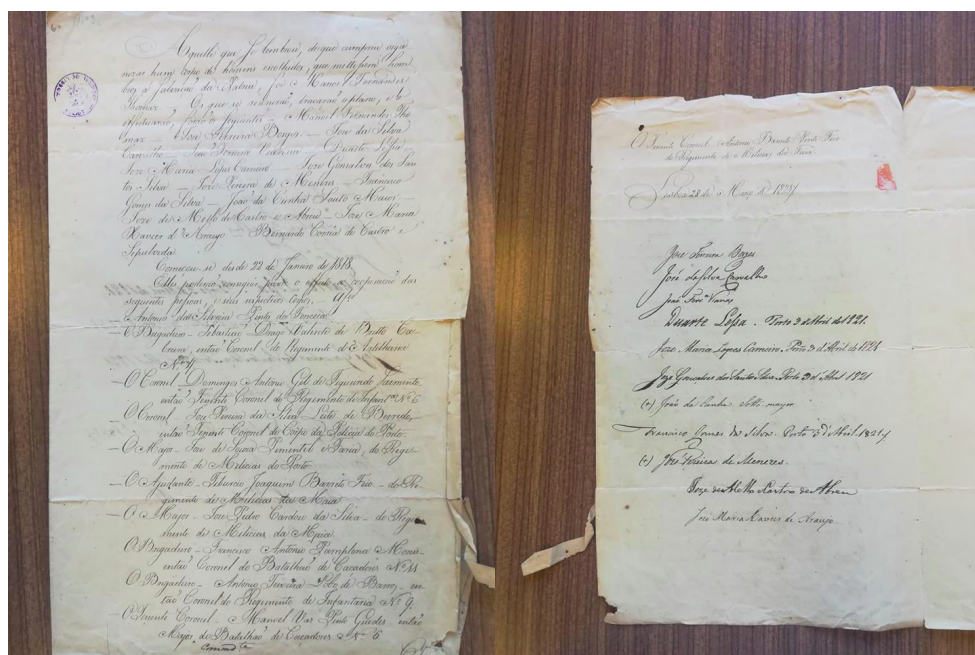 Aquelle que se lembrou, de que cumprira orga-
nizar hum corpo de homens escolhidos, que mettessem hom-
bros à salvação da Patria, foi Manoel Fernandes
Thomaz. Os que se reunirão, e
effeituarão, forão os seguintes — Manoel Fernandes Tho-
maz — José Ferreira Borges — José da Silva
Carvalho — João Ferreira Vianna — Duarte Lessa —
José Maria Lopes Carneiro — José Gonsalves dos San-
tos Silva — José Pereira de Menezes — Francisco
Gomes da Silva — João da Cunha Souto Maior —
José de Mello de Castro e Abreu — José Maria
Xavier d'Araujo — Bernardo Correia de Castro e
Sepulveda.
Começou-se desde 22 de Janeiro de 1818.
Elles poderão conseguir para o effeito a cooperação das
seguintes pessoas, e seus respectivos corpos.
Antonio da Silveira Pinto da Fonseca
O Brigadeiro — Sebastião Drago Valente de Britto Ca-
breira, então Coronel do Regimento d'Artilharia
Nº 4
— O Coronel — Domingos Antonio Gil de Figueiredo Sarmento
então Tenente Coronel do Regimento de Infantª Nº 6
O Coronel — José Pereira da Silva Leite de Berredo,
então Tenente Coronel do Corpo da Policia do Porto.
— O Major — José de Sousa Pimentel e Faria, do Regi-
mento de Milicias do Porto
— O Ajudante — Tiburcio Joaquim Barreto Feio — do Re-
gimento de Milicias da Maia
— O Major — José Pedro Cardoso da Silva — do Regi-
mento de Milicias da Maia.
O Brigadeiro — Francisco Antonio Pamplona Moniz
então Coronel do Batalhão de Cacadores Nº 11
O Brigadeiro — Antonio Teixeira de Barros, en-
tão Coronel do Regimento de Infantaria Nº 9.
— O Tenente Coronel — Manoel Vaz Pinto Guedes, então
Major do Batalhão de Cacadores Nº 6
O Tenente Coronel Antonio Barreto Pinto Feio
do Regimento de Milicias da Feira
Lisboa 28 de Março de 1821
José Ferreira Borges
José da Silva Carvalho
João Ferª Vianna
Duarte Lessa. Porto 3 d'Abril de 1821.
Joze Maria Lopes Carneiro. Porto 3 d'Abril de 1821
Joze Gonçalves dos Santos Silva. Porto 3 d'Abril 1821
(a) João da Cunha Sotto-mayor
Francisco Gomes da Silva. Porto 3 d'Abril 1821
(a) José Pereira de Menezes.
Joze de Mello Castro de Abreu
José Maria Xavier de Araujo